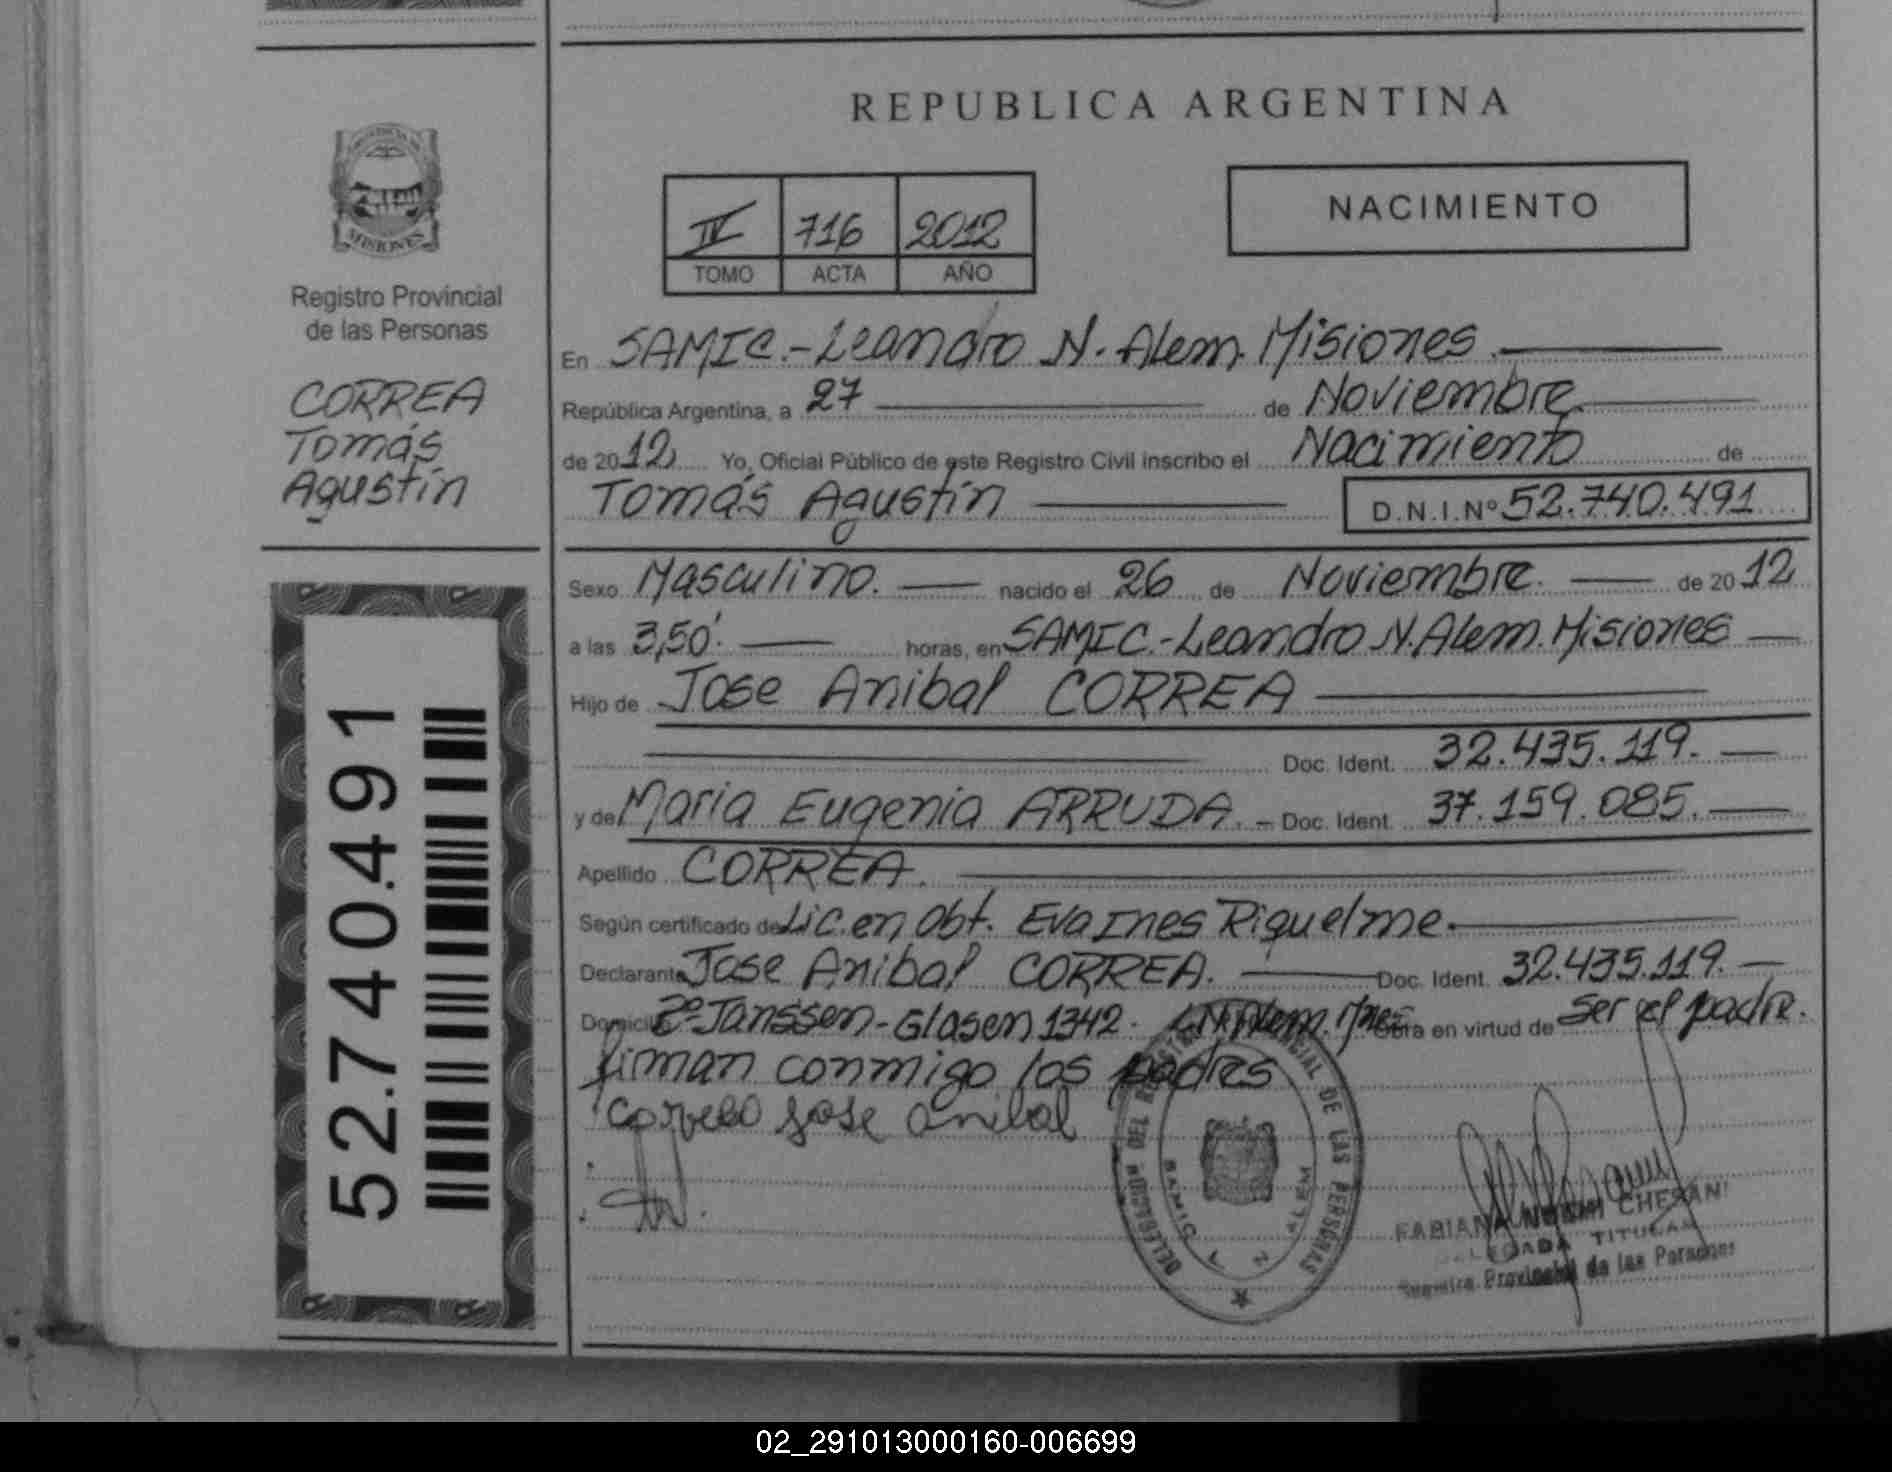 REPUBLICA ARGENTINA
MISIONES
Registro Provincial
de las Personas
CORREA
Tomás
Agustín
52.740.491
IV 716 2012
TOMO ACTA AÑO
NACIMIENTO
En SAMIC.-Leandro N. Alem. Misiones
República Argentina, a 27 de Noviembre
de 2012 Yo, Oficial Público de este Registro Civil inscribo el Nacimiento de
Tomás Agustín D.N.I.Nº 52.740.491
Sexo Masculino. nacido el 26 de Noviembre. de 2012
a las 3,50'. horas, en SAMIC.-Leandro N. Alem. Misiones
Hijo de Jose Anibal CORREA
Doc. Ident. 32.435.119.
y de Maria Eugenia ARRUDA. Doc. Ident. 37.159.085.
Apellido CORREA.
Según certificado de Lic. en Obt. Eva Ines Riquelme.
Declarante Jose Anibal CORREA. Doc. Ident. 32.435.119.
Domicilio Bº Janssen-Glasen 1342. L.N.Alem. Mnes Obra en virtud de ser el padre.
firman conmigo los padres
jose anibal
DELEGACION DEL REGISTRO PROVINCIAL DE LAS PERSONAS
SAMIC L. N. ALEM
FABIANA NOEMI CHESANI
DELEGADA TITULAR
Registro Provincial de las Personas
02_291013000160-006699